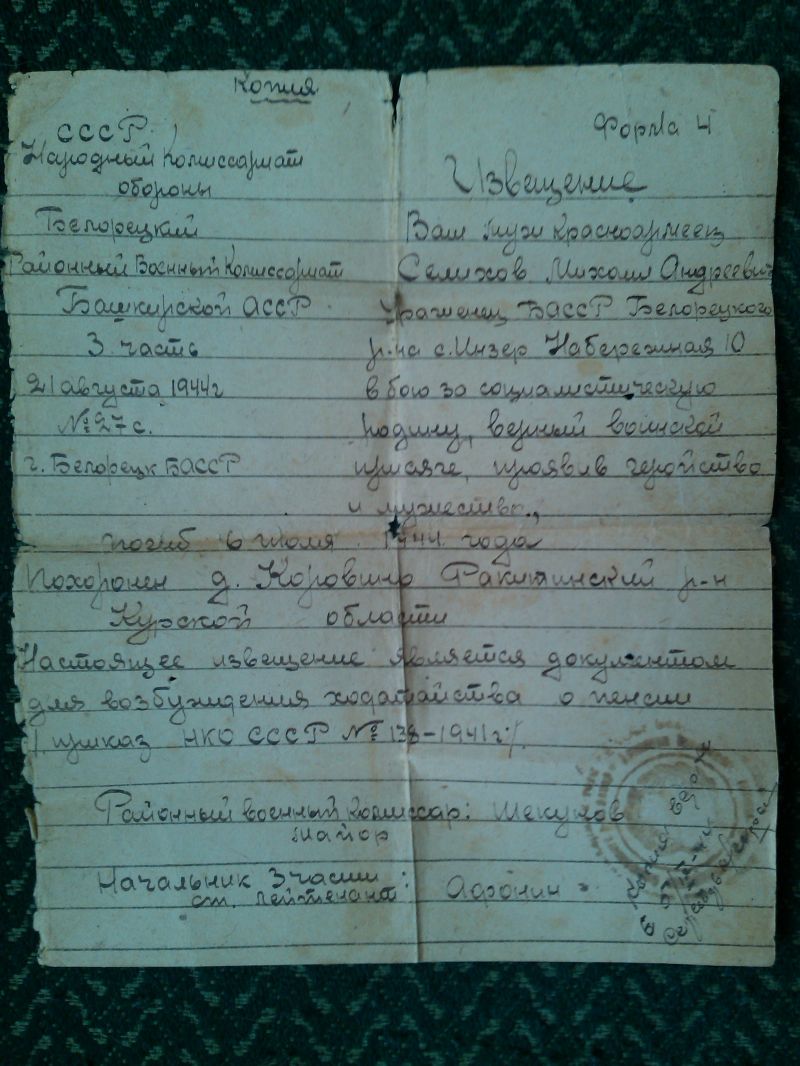 Копия
СССР
Народный Комиссариат
обороны
Белорецкий
Районный Военный Комиссариат
Башкирской АССР
3 часть
21 августа 1944г
№ 27 с.
г. Белорецк БАССР
Форма 4
Извещение
Ваш муж красноармеец
Селихов Михаил Андреевич
Уроженец БАССР Белорецкого
р-на с. Инзер Набережная 10
в бою за социалистическую
родину, верный воинской
присяге, проявив геройство
и мужество.,
погиб 6 июля 1944 года
Похоронен д. Коровино Ракитинский р-н
Курской области
Настоящее извещение является документом
для возбуждения ходатайства о пенсии
/ приказ НКО СССР № 138-1941г./.
Районный военный Комиссар: Шекунов
майор
Начальник 3 части :
ст. лейтенант Афонин
Копия верна